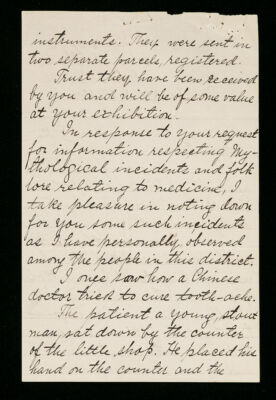 instruments. They were sent in
two separate parcels, registered.
Trust they have been received
by you and will be of some value
at your exhibition.
In response to your request
for information respecting My-
thological incidents and folk
lore relating to medicine, I
take pleasure in noting down
for you some such incidents
as I have personally observed
among the people in this district.
I once saw how a Chinese
doctor tries to cure tooth-ache.
The patient a young, stout
man, sat down by the counter
of the little shop. He placed his
hand on the counter and the